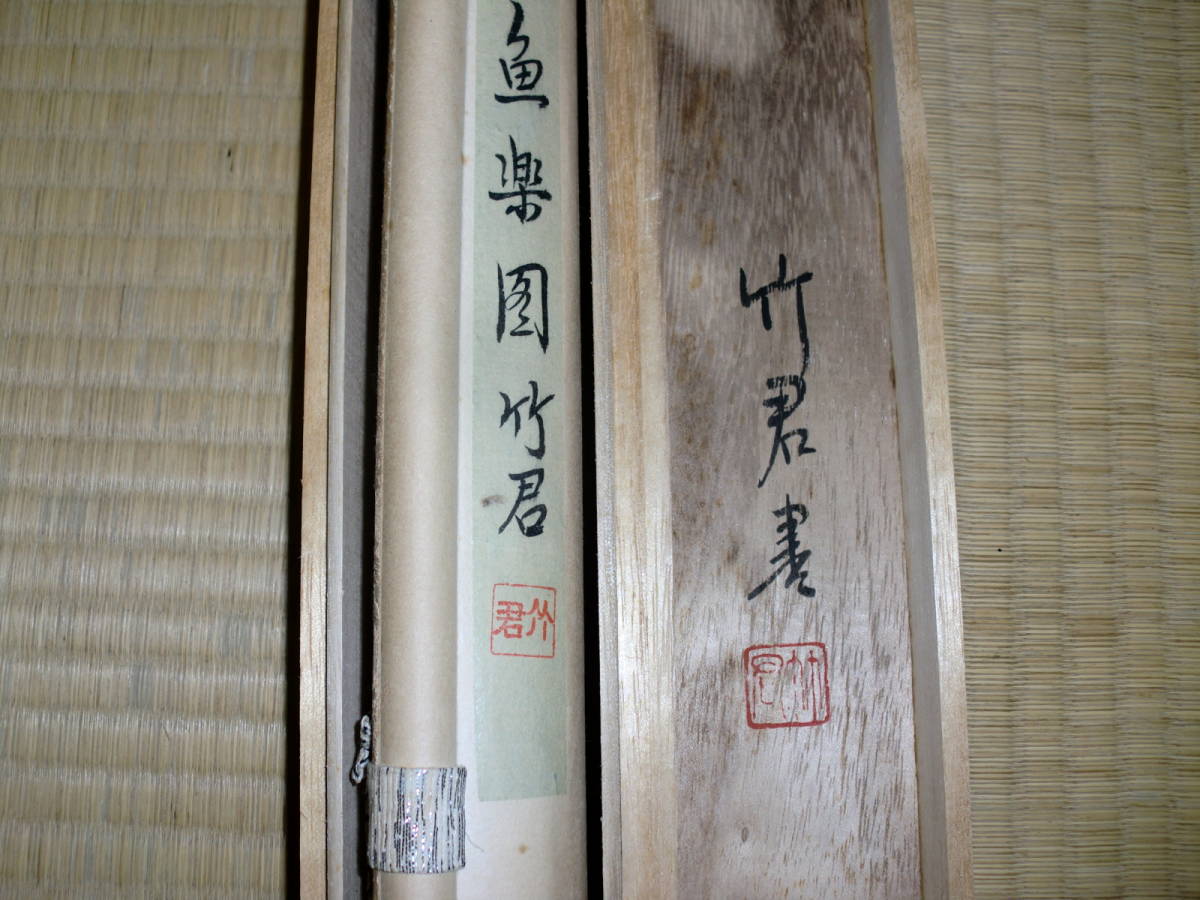 魚楽図 竹君
竹君
竹君書
竹君